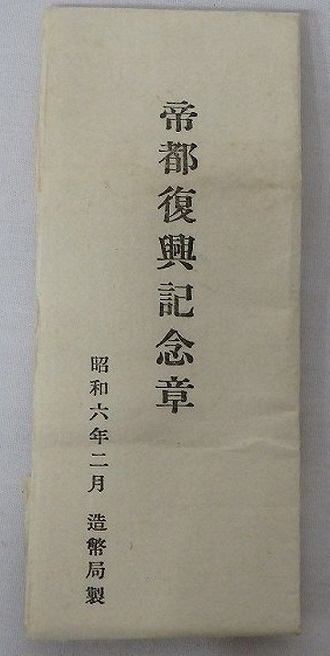 帝都復興記念章
昭和六年二月 造幣局製